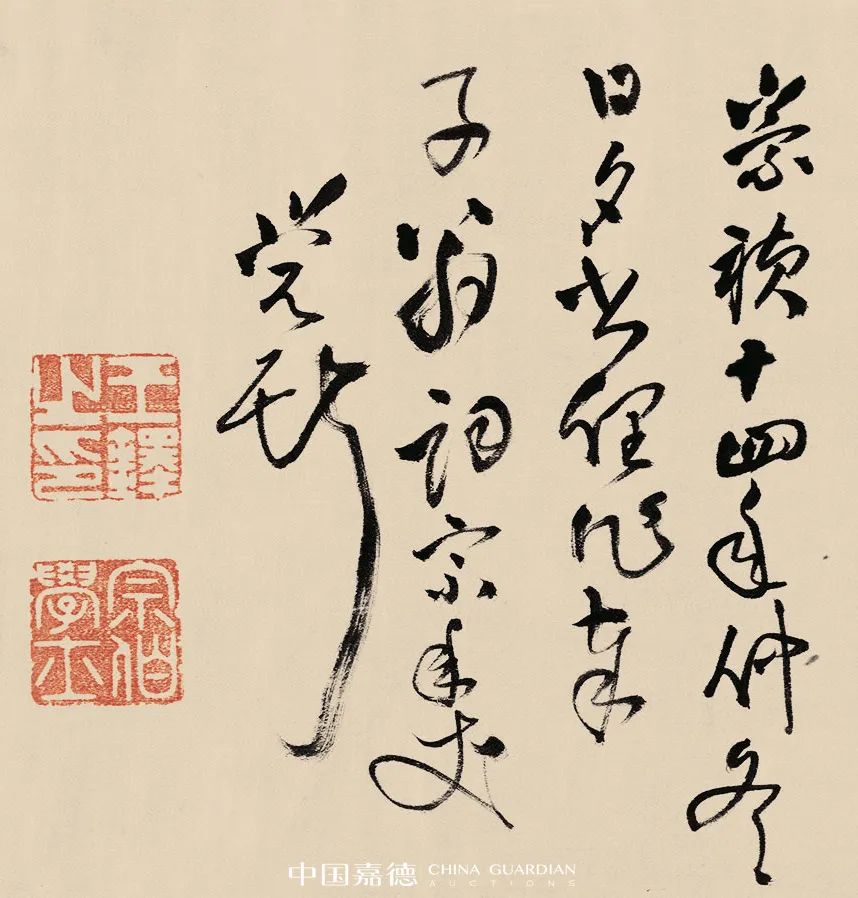 崇禎十四年仲冬
日夕書俚作奉
子翁詞宗年丈
覺斯
王鐸之印
宗伯學士
中国嘉德 CHINA GUARDIAN
AUCTIONS